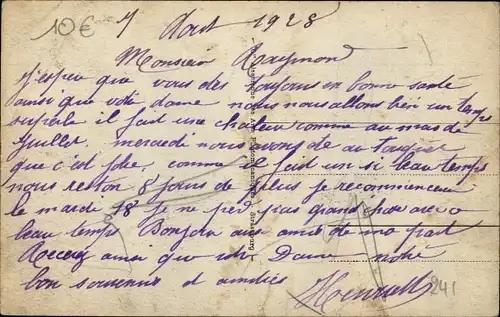 10€
7 Aout 1928
Monsieur Raymon
j'espere que vous des toujours en bonne santé
ainsi que votre dame nous nous allons bien un temps
superbe il fait une chaleur comme au mois de
Juillet. mercredi nous avons de au
que c'est jolie. comme il fait un si beau temps
nous reston 8 jours de plus je recommence
le mardi 18 je ne perd pas grand chose avec
beau temps Bonjour aux amis de ma part
Recevez ainsi que votre Dame notre
bon souvenir et amitiés
Henriette
241